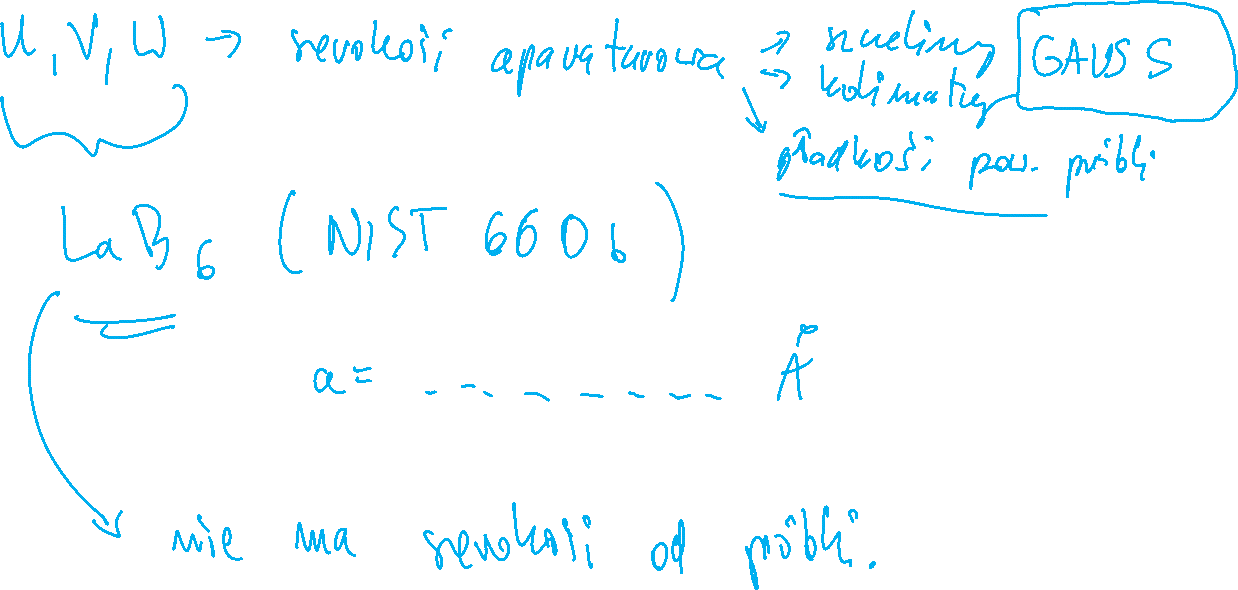 U, V, W → szerokość aparaturowa → szczeliny GAUSS
→ kolimatory
gładkość pow. próbki
LaB6 (NIST 660b)
a = _ _ _ _ _ _ _ Å
nie ma szerokości od próbki.